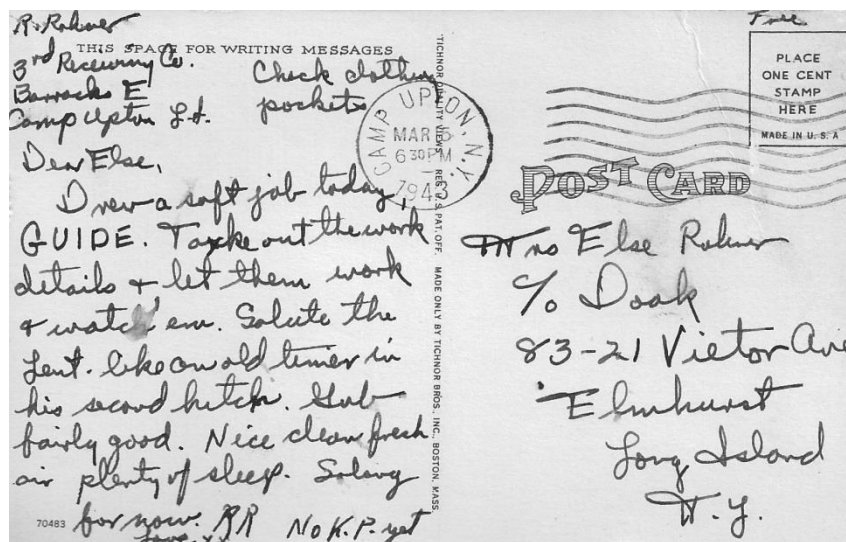 R. Rohmer
THIS SPACE FOR WRITING MESSAGES
3rd Receiving Co.
Barracks E
Camp Upton L.I.
Check clothing
pockets
Dear Else,
Drew a soft job today,
GUIDE. Take out the work
details + let them work
+ watch 'em. Salute the
Leut. like an old timer in
his second hitch. Grub
fairly good. Nice clean fresh
air plenty of sleep. Solong
for now. RR No K.P. yet
Love. xx
70483
TICHNOR QUALITY VIEWS REG. U. S. PAT. OFF. MADE ONLY BY TICHNOR BROS. INC., BOSTON, MASS.
CAMP UPTON, N.Y.
MAR
6 30 PM
1943
Free
PLACE
ONE CENT
STAMP
HERE
MADE IN U. S. A
POST CARD
Mrs Else Rohmer
c/o Doak
83-21 Vietor Ave
Elmhurst
Long Island
N.Y.